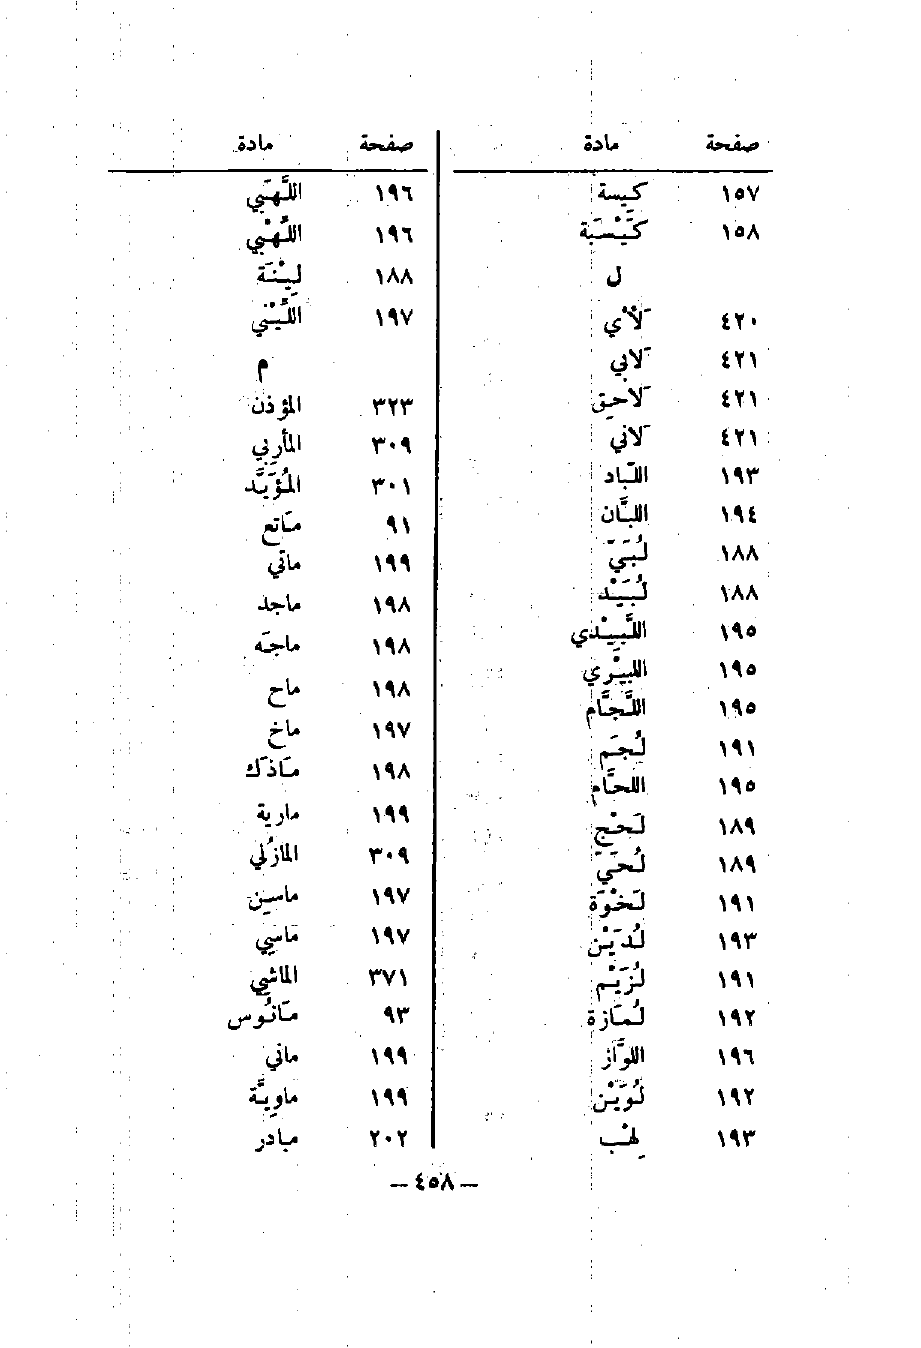 صفحة مادة
١٥٧ كيسة
١٥٨ كَيْسَبَة
ل
٤٢٠ لَأْي
٤٢١ لَابي
٤٢١ لَاحِق
٤٢١ لَاني
١٩٣ اللبّاد
١٩٤ اللبَّان
١٨٨ لُبَيّ
١٨٨ لُبَيْد
١٩٥ اللَّبِيْدي
١٩٥ اللبِيْري
١٩٥ اللَّجَّام
١٩١ لُجَم
١٩٥ اللحَّام
١٨٩ لَحْج
١٨٩ لُحَيّ
١٩١ لَخْوَة
١٩٣ لُدَيْن
١٩١ لُزَيْم
١٩٢ لُمَازة
١٩٦ اللوَّاز
١٩٢ لُوَيْن
١٩٣ لِهْب
صفحة مادة
١٩٦ اللَّهَبي
١٩٦ اللِّهْبي
١٨٨ لِيْنَة
١٩٧ اللَّيْني
م
٣٢٣ المؤذن
٣٠٩ المأربي
٣٠١ المُؤَيَّد
٩١ مَاتع
١٩٩ ماتي
١٩٨ ماجد
١٩٨ ماجَه
١٩٨ ماح
١٩٧ ماخ
١٩٨ مَاذَك
١٩٩ مارية
٣٠٩ المازُلي
١٩٧ ماسين
١٩٧ مَاسِي
٣٧١ الماشي
٩٣ مَانُوس
١٩٩ ماني
١٩٩ ماوِيَّة
٢٠٢ مبادر
— ٤٥٨ —